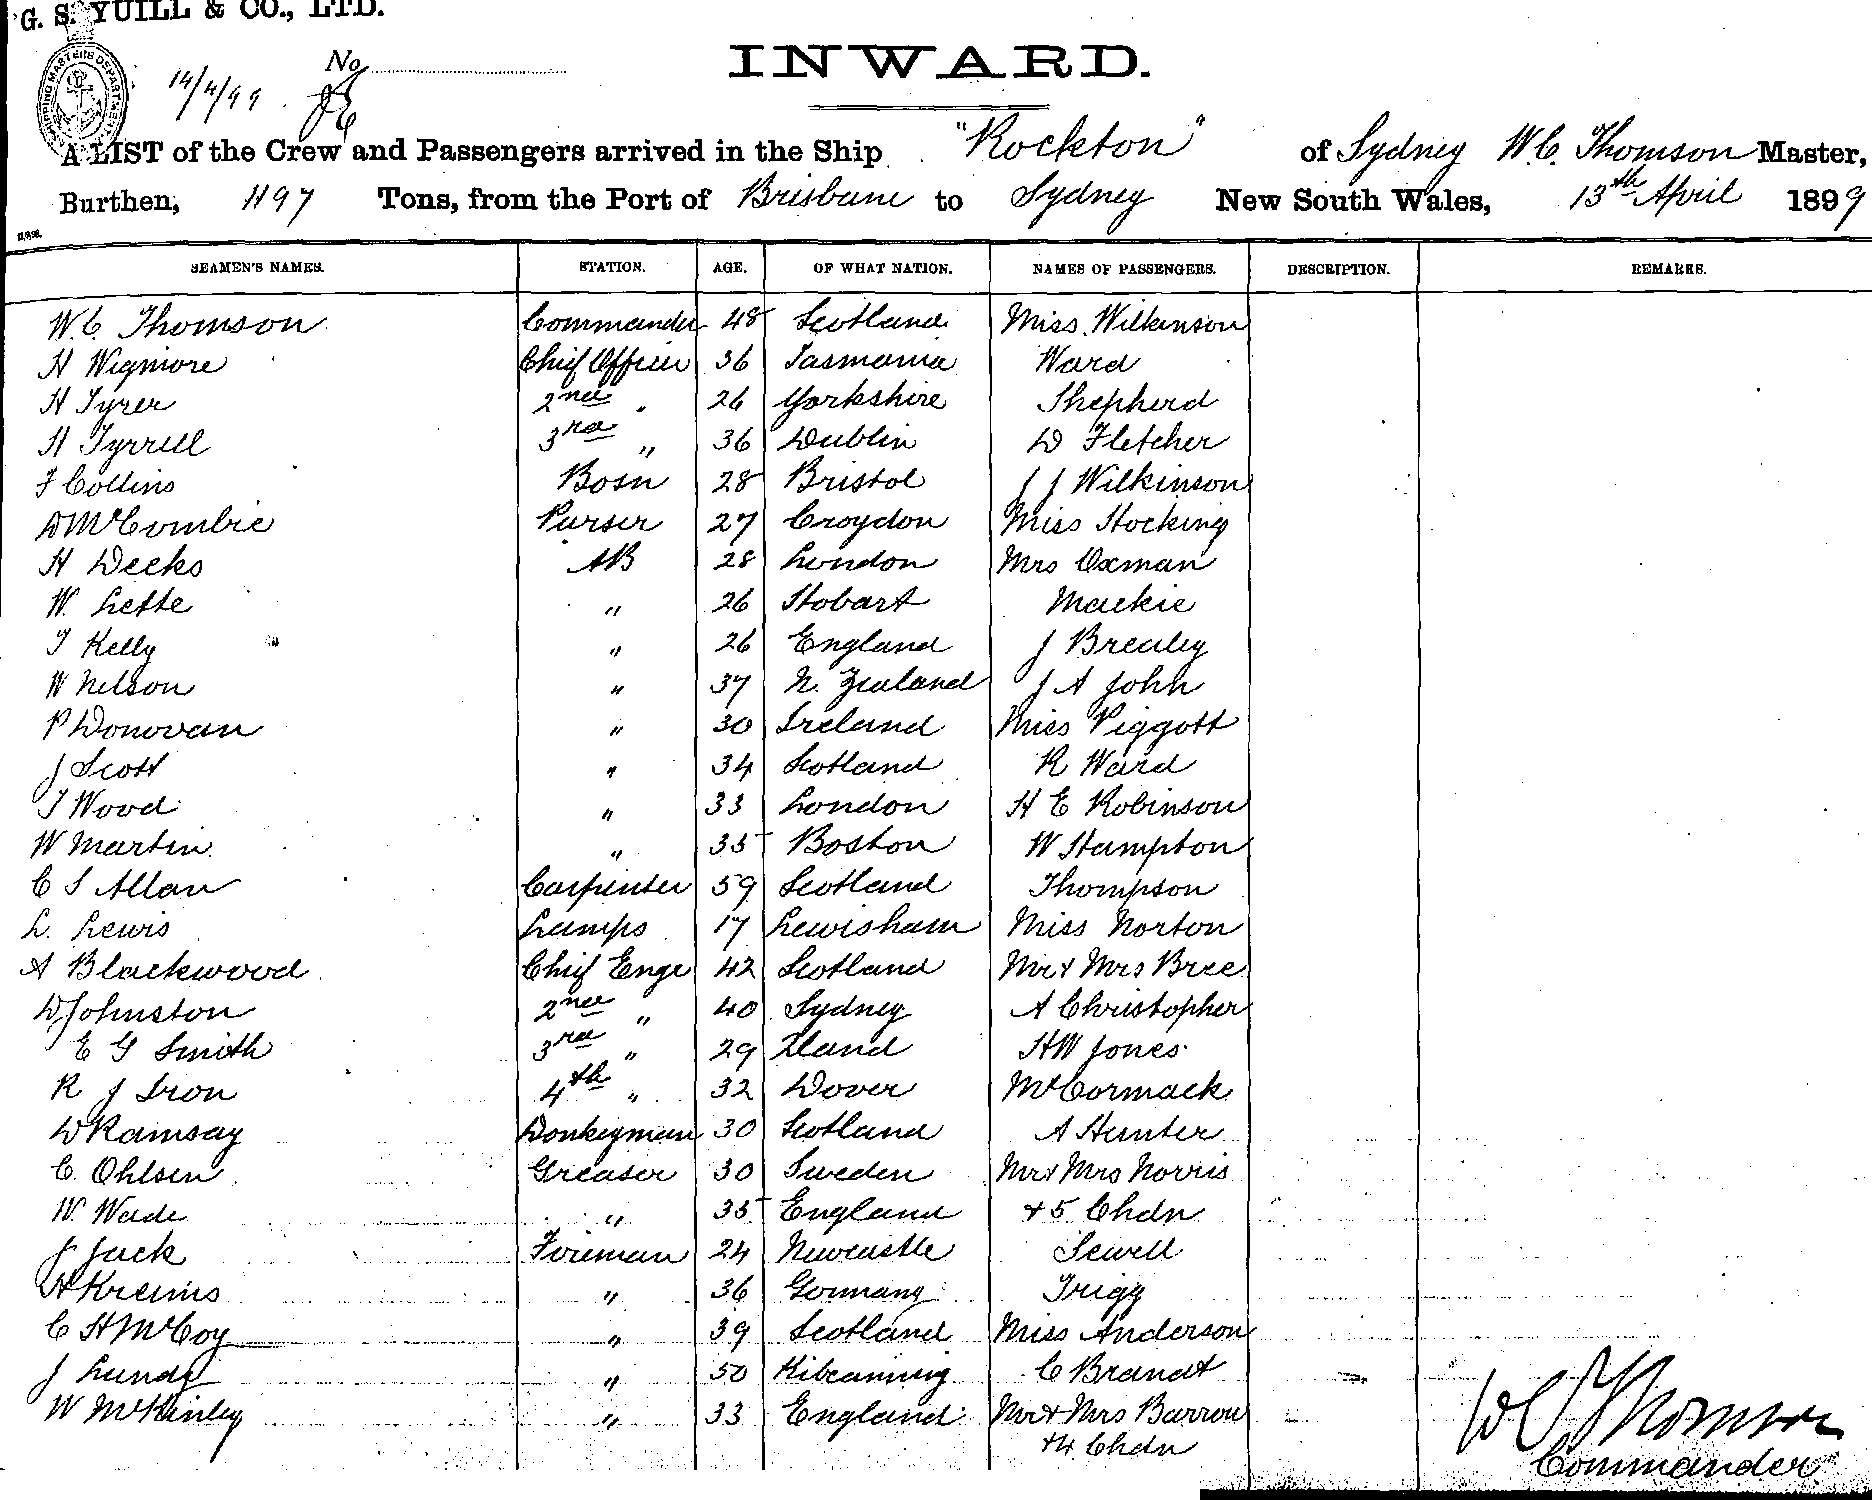 G. S. YUILL & CO., LTD.
SHIPPING MASTERS DEPARTMENT
14/4/99
No
INWARD.
A LIST of the Crew and Passengers arrived in the Ship "Rockton" of Sydney W.C. Thomson Master,
Burthen, 1197 Tons, from the Port of Brisbane to Sydney New South Wales, 13th April 1899
SEAMEN'S NAMES. STATION. AGE. OF WHAT NATION. NAMES OF PASSENGERS. DESCRIPTION. REMARKS.
W.C. Thomson Commander 48 Scotland Miss Wilkinson
H Wigmore Chief Officer 36 Tasmania Ward
H Tyrer 2nd " 26 Yorkshire Shepherd
H Tyrrell 3rd " 36 Dublin D Fletcher
F Collins Bosn 28 Bristol J J Wilkinson
D McCombie Purser 27 Croydon Miss Hocking
H Deeks AB 28 London Mrs Oxman
W. Lette " 26 Hobart Mackie
T Kelly " 26 England J Brealey
W Nelson " 37 N. Zealand J A John
P Donovan " 30 Ireland Miss Piggott
J Scott " 34 Scotland R Ward
T Wood " 33 London H E Robinson
W Martin " 35 Boston W Hampton
C S Allan Carpenter 59 Scotland Thompson
L. Lewis Lamps 17 Lewisham Miss Norton
A Blackwood Chief Enge 42 Scotland Mr & Mrs Bree
D Johnston 2nd " 40 Sydney A Christopher
E G Smith 3rd " 29 Zland HW Jones
R J Iron 4th " 32 Dover McCormack
D Ramsay Donkeyman 30 Scotland A Hunter
C. Ohlsen Greaser 30 Sweden Mr & Mrs Norris
W. Wade " 35 England + 5 Chdn
J Jack Fireman 24 Newcastle Sewell
H Kreims " 36 Germany Trigg
C H McCoy " 39 Scotland Miss Anderson
J Lundy " 50 C Brandt
W McKinley " 33 England Mr & Mrs Barrow
+4 Chdn
WC Thomson
Commander